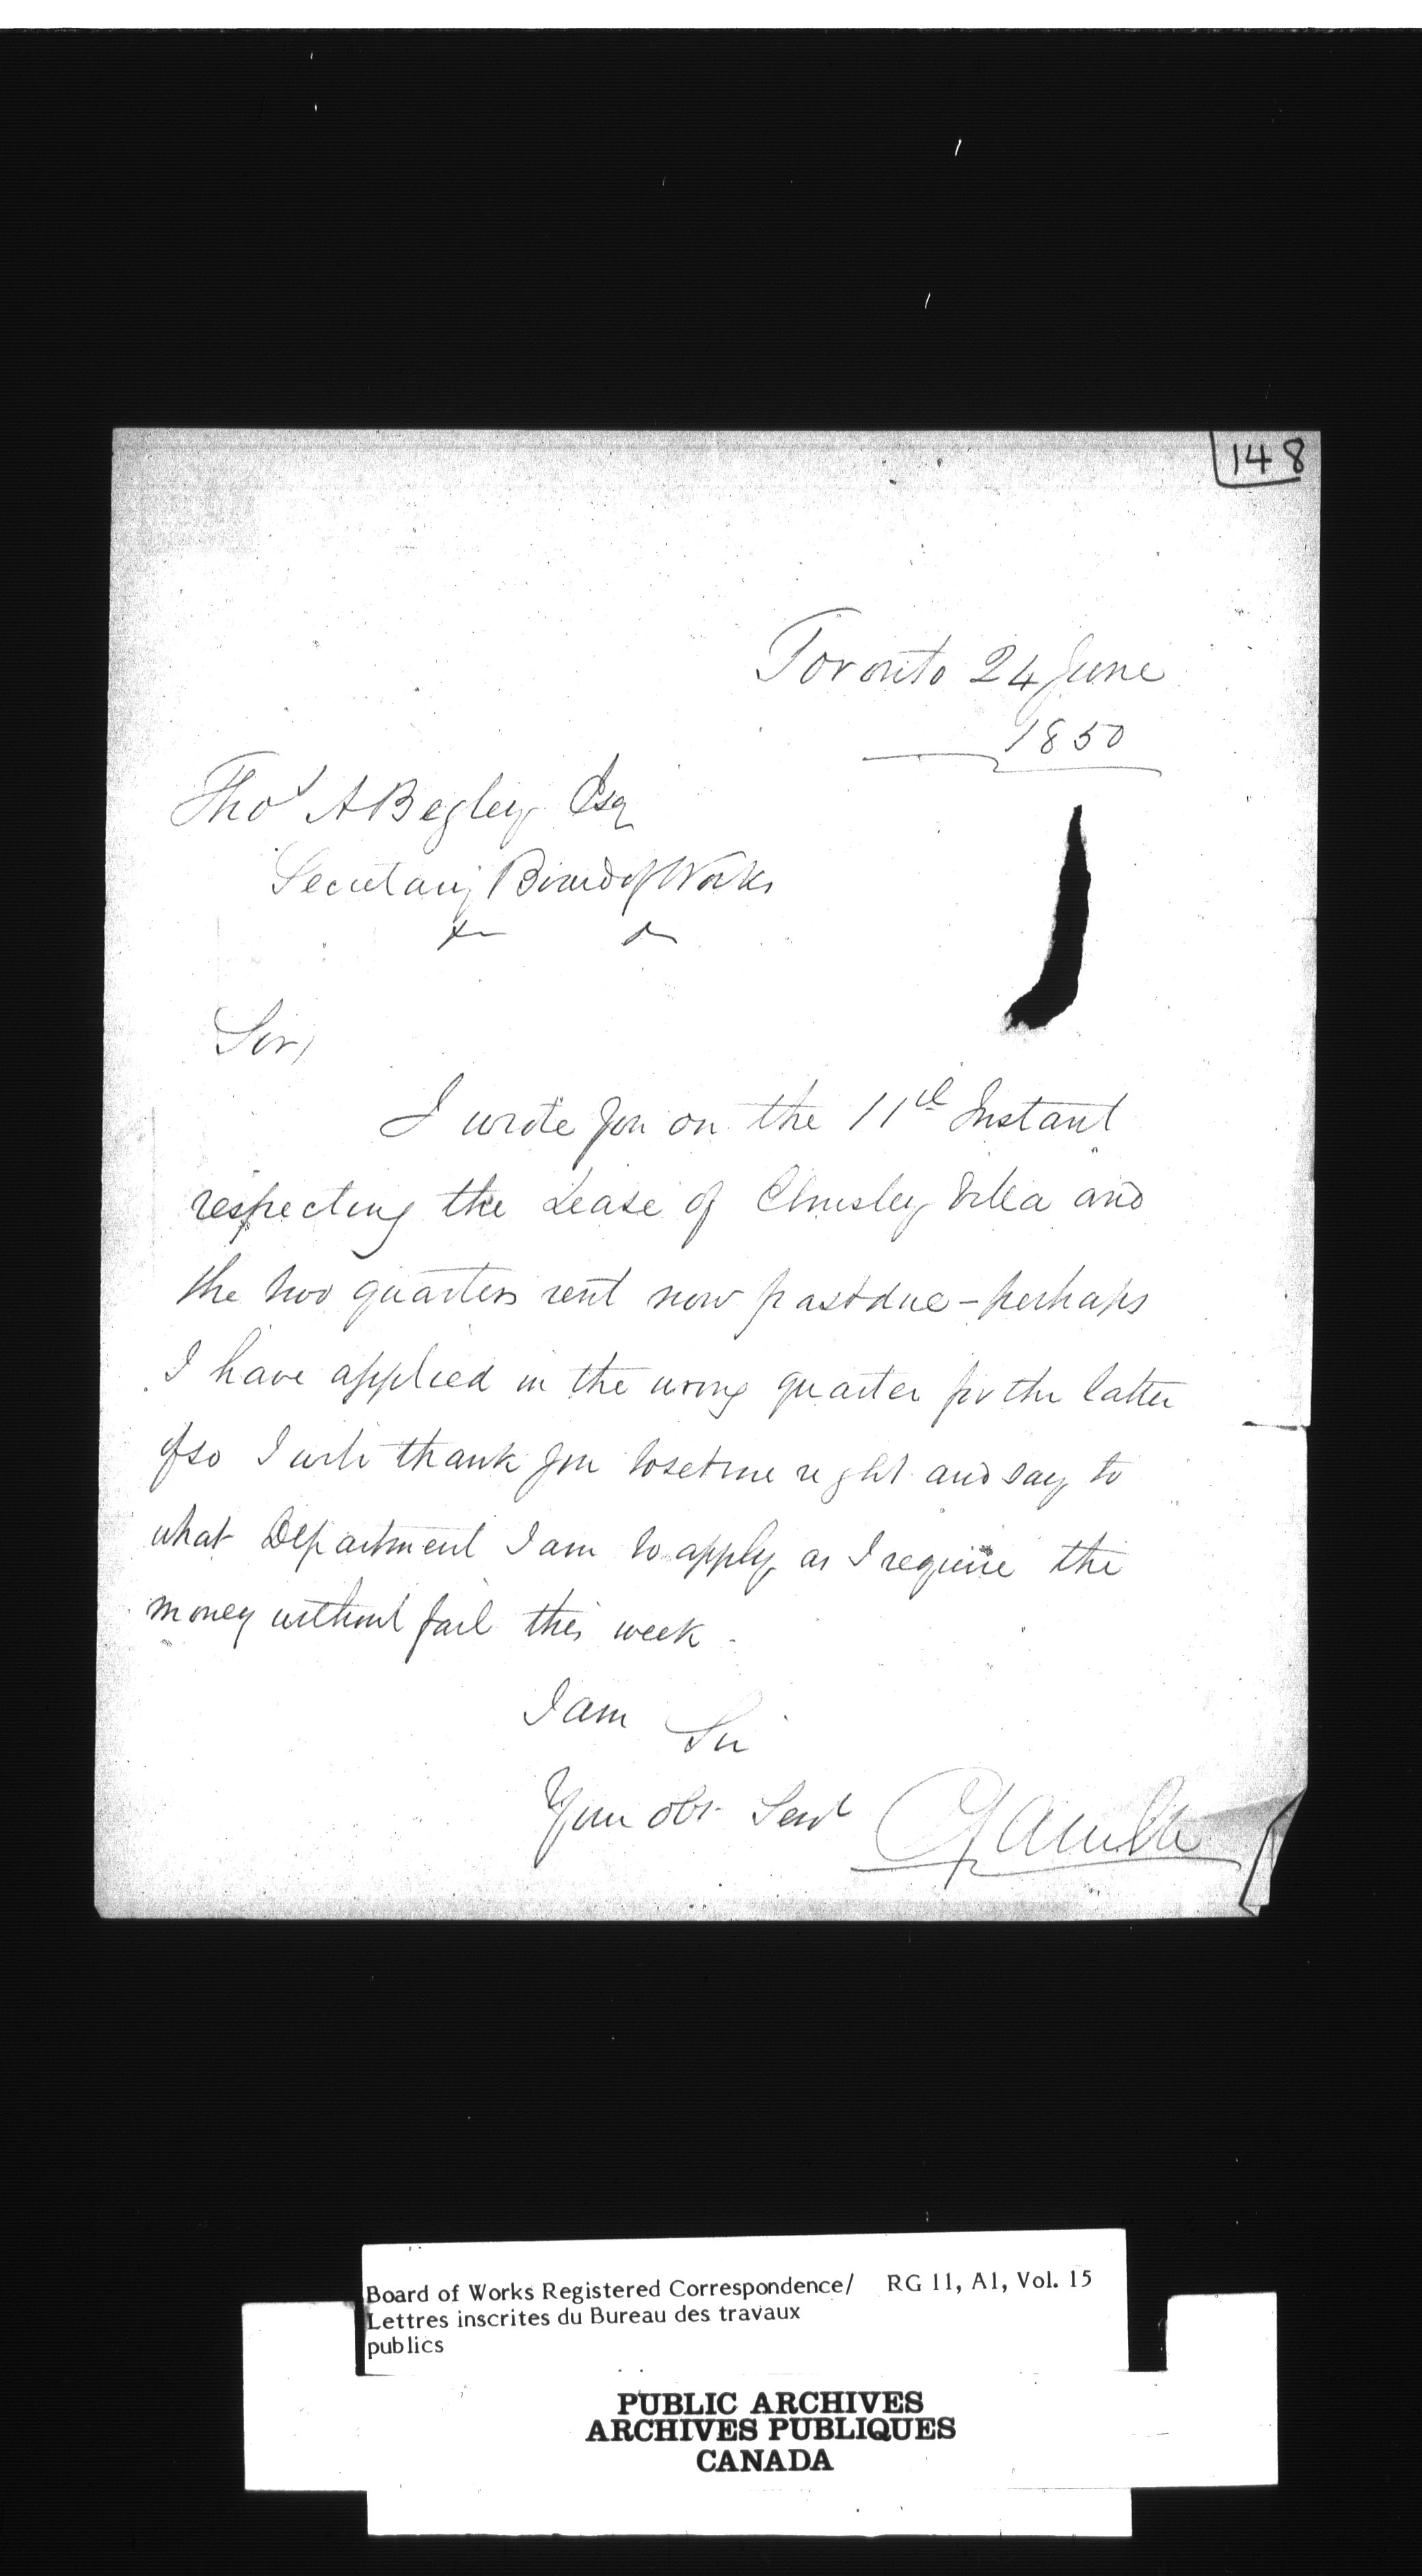 148
Toronto 24 June
1850
Thos A Begley Esq
Secretary Board of Works
Sir,
I wrote you on the 11th Instant
respecting the Lease of Elmsley Villa and
the two quarters rent now past due - perhaps
I have applied in the wrong quarter for the latter
if so I will thank you to set me right and say to
what Department I am to apply as I require the
money without fail this week.
I am
Sir
Your obt Servt
Board of Works Registered Correspondence/ RG 11, A1, Vol. 15
Lettres inscrites du Bureau des travaux
publics
PUBLIC ARCHIVES
ARCHIVES PUBLIQUES
CANADA